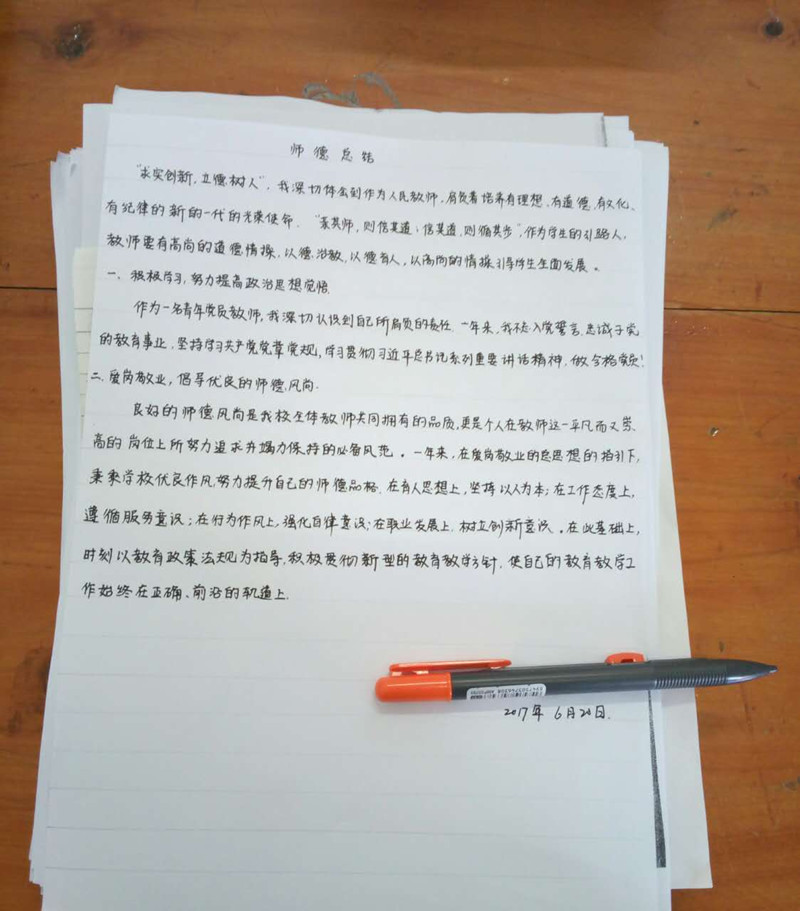 师德总结
“求实创新,立德树人”,我深切体会到作为人民教师,肩负着培养有理想、有道德、有文化、
有纪律的新的一代的光荣使命。“亲其师,则信其道;信其道,则循其步”,作为学生的引路人,
教师要有高尚的道德情操,以德治教,以德育人,以高尚的情操引导学生全面发展。
一、积极学习,努力提高政治思想觉悟.
作为一名青年党员教师,我深切认识到自己所肩负的责任.一年来,我不忘入党誓言,忠诚于党
的教育事业,坚持学习共产党党章党规,学习贯彻习近平总书记系列重要讲话精神,做合格党员!
二、爱岗敬业,倡导优良的师德风尚.
良好的师德风尚是我校全体教师共同拥有的品质,更是个人在教师这一平凡而又崇
高的岗位上所努力追求并竭力保持的必备风范。一年来,在爱岗敬业的总思想的指引下,
秉承学校优良作风,努力提升自己的师德品格.在育人思想上,坚持以人为本;在工作态度上,
遵循服务意识;在行为作风上,强化自律意识;在职业发展上,树立创新意识。在此基础上,
时刻以教育政策法规为指导,积极贯彻新型的教育教学方针,使自己的教育教学工
作始终在正确、前沿的轨道上.
2017年 6月20日.